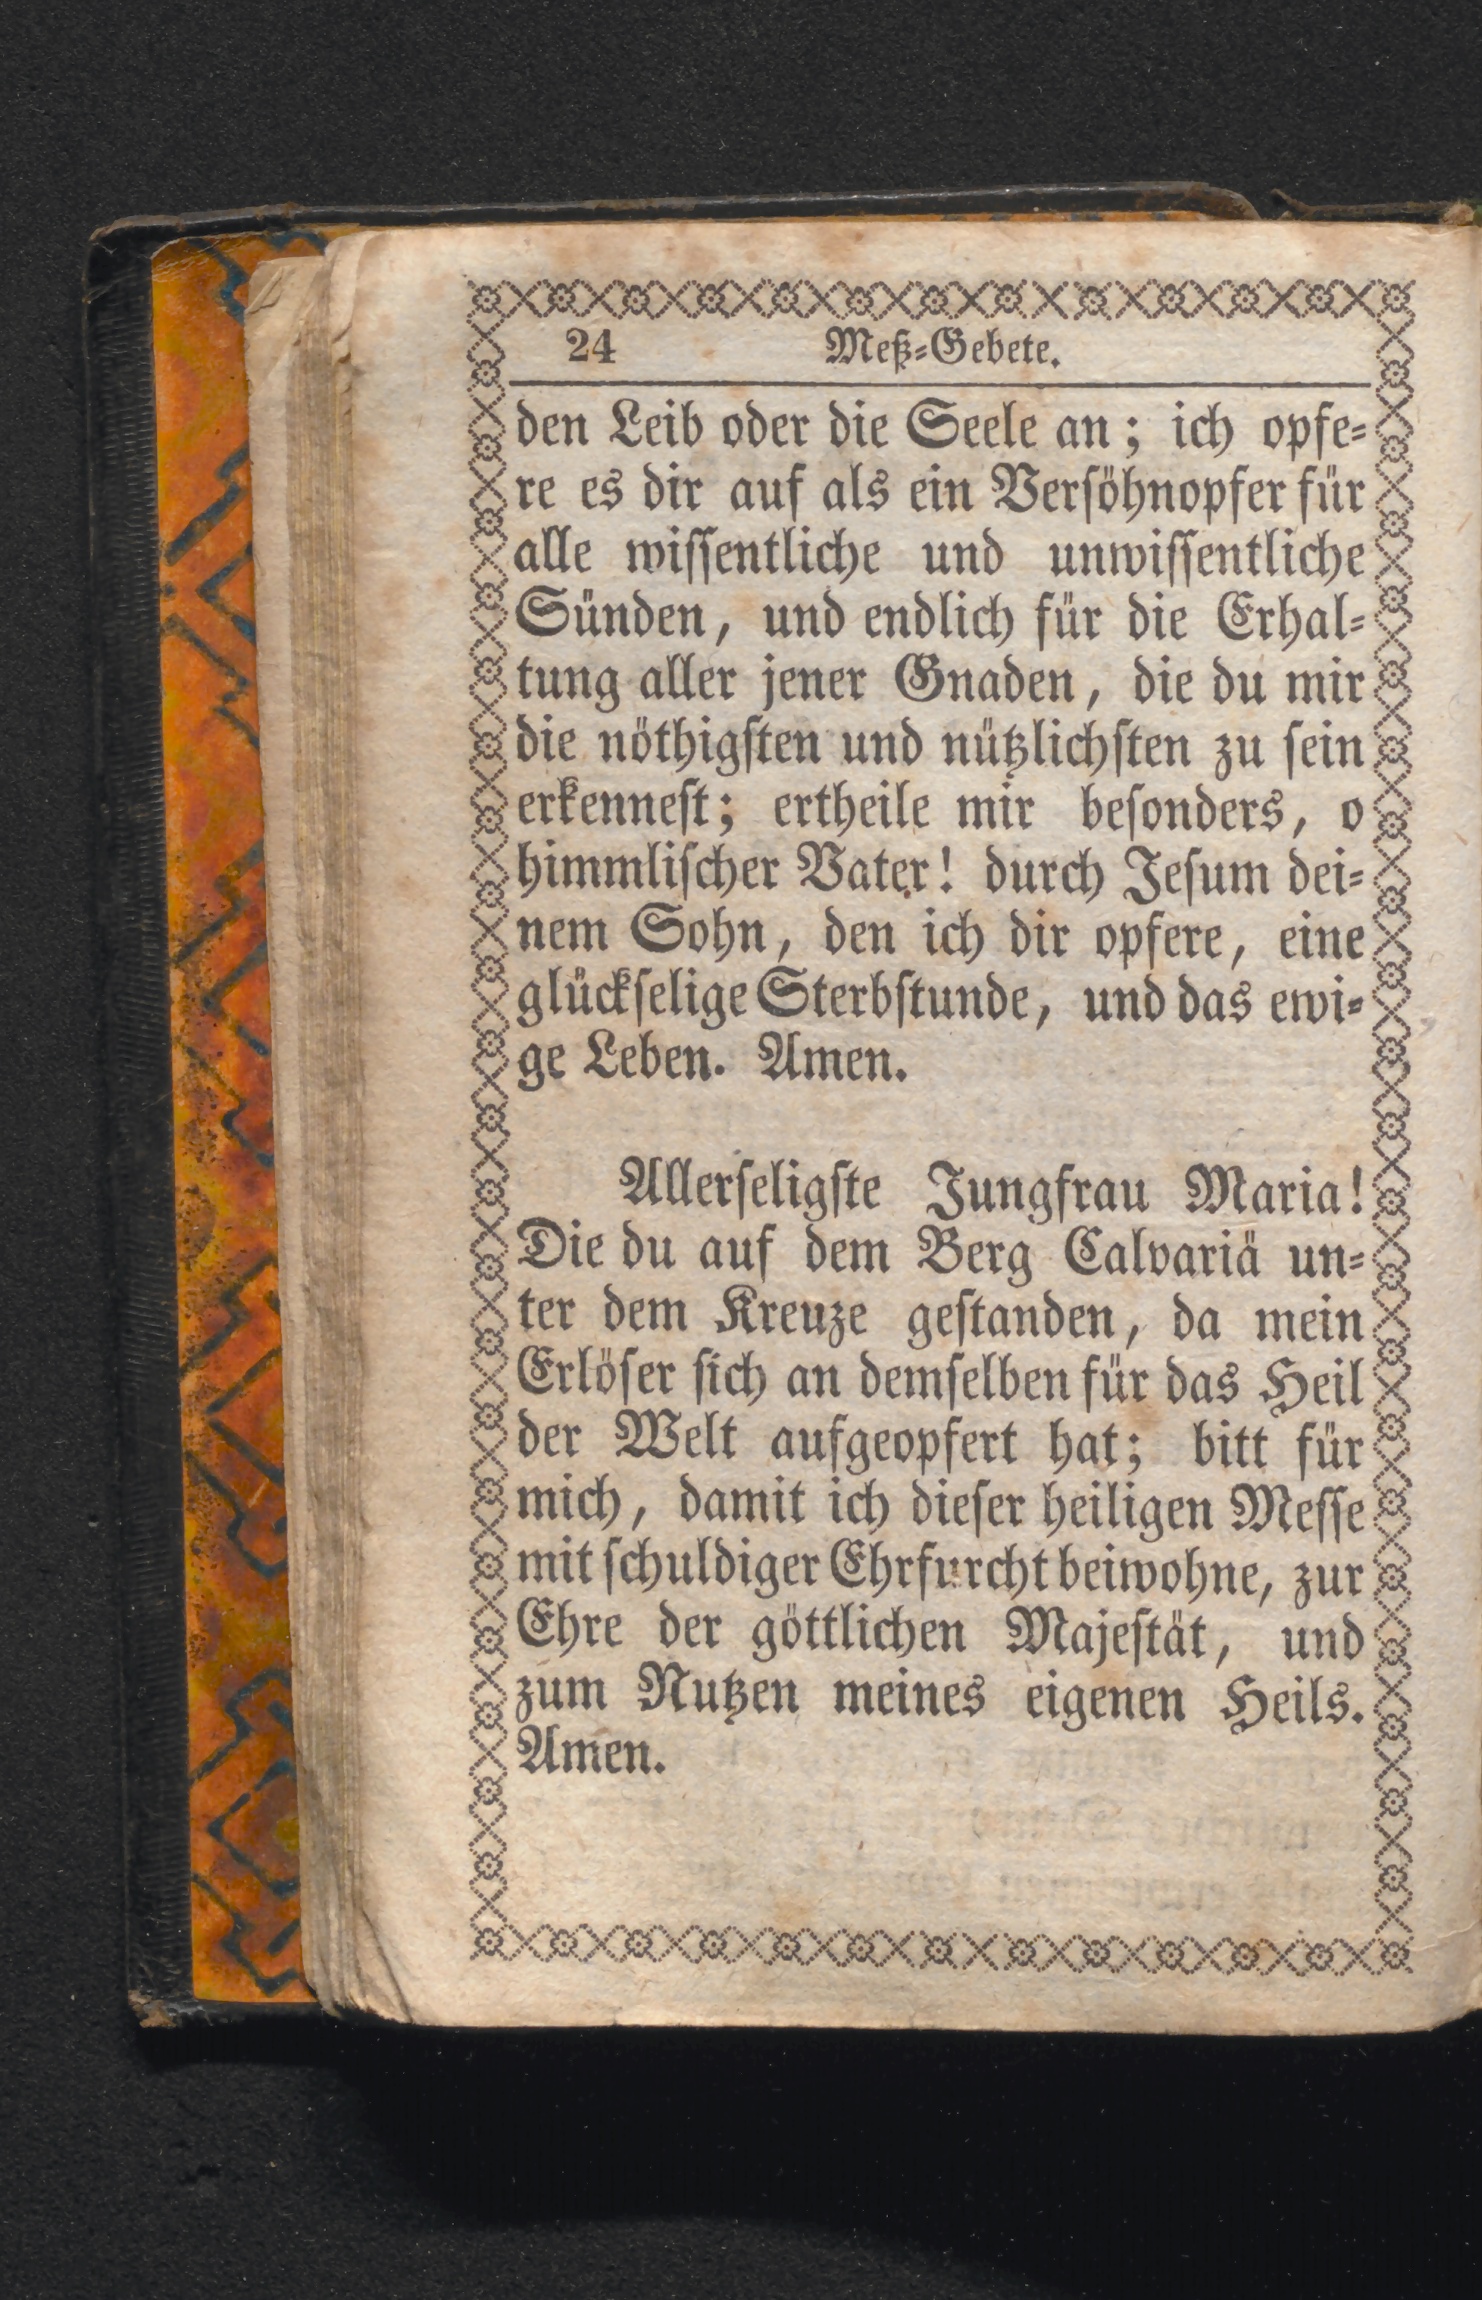 24 Meß-Gebete.
den Leib oder die Seele an; ich opfe-
re es dir auf als ein Verſöhnopfer für
alle wiſſentliche und unwiſſentliche
Sünden, und endlich für die Erhal-
tung aller jener Gnaden, die du mir
die nöthigſten und nützlichſten zu ſein
erkenneſt; ertheile mir beſonders, o
himmliſcher Vater! durch Jeſum dei-
nem Sohn, den ich dir opfere, eine
glückſelige Sterbſtunde, und das ewi-
ge Leben. Amen.
Allerſeligſte Jungfrau Maria!
Die du auf dem Berg Calvariä un-
ter dem Kreuze geſtanden, da mein
Erlöſer ſich an demſelben für das Heil
der Welt aufgeopfert hat; bitt für
mich, damit ich dieſer heiligen Meſſe
mit ſchuldiger Ehrfurcht beiwohne, zur
Ehre der göttlichen Majeſtät, und
zum Nutzen meines eigenen Heils.
Amen.